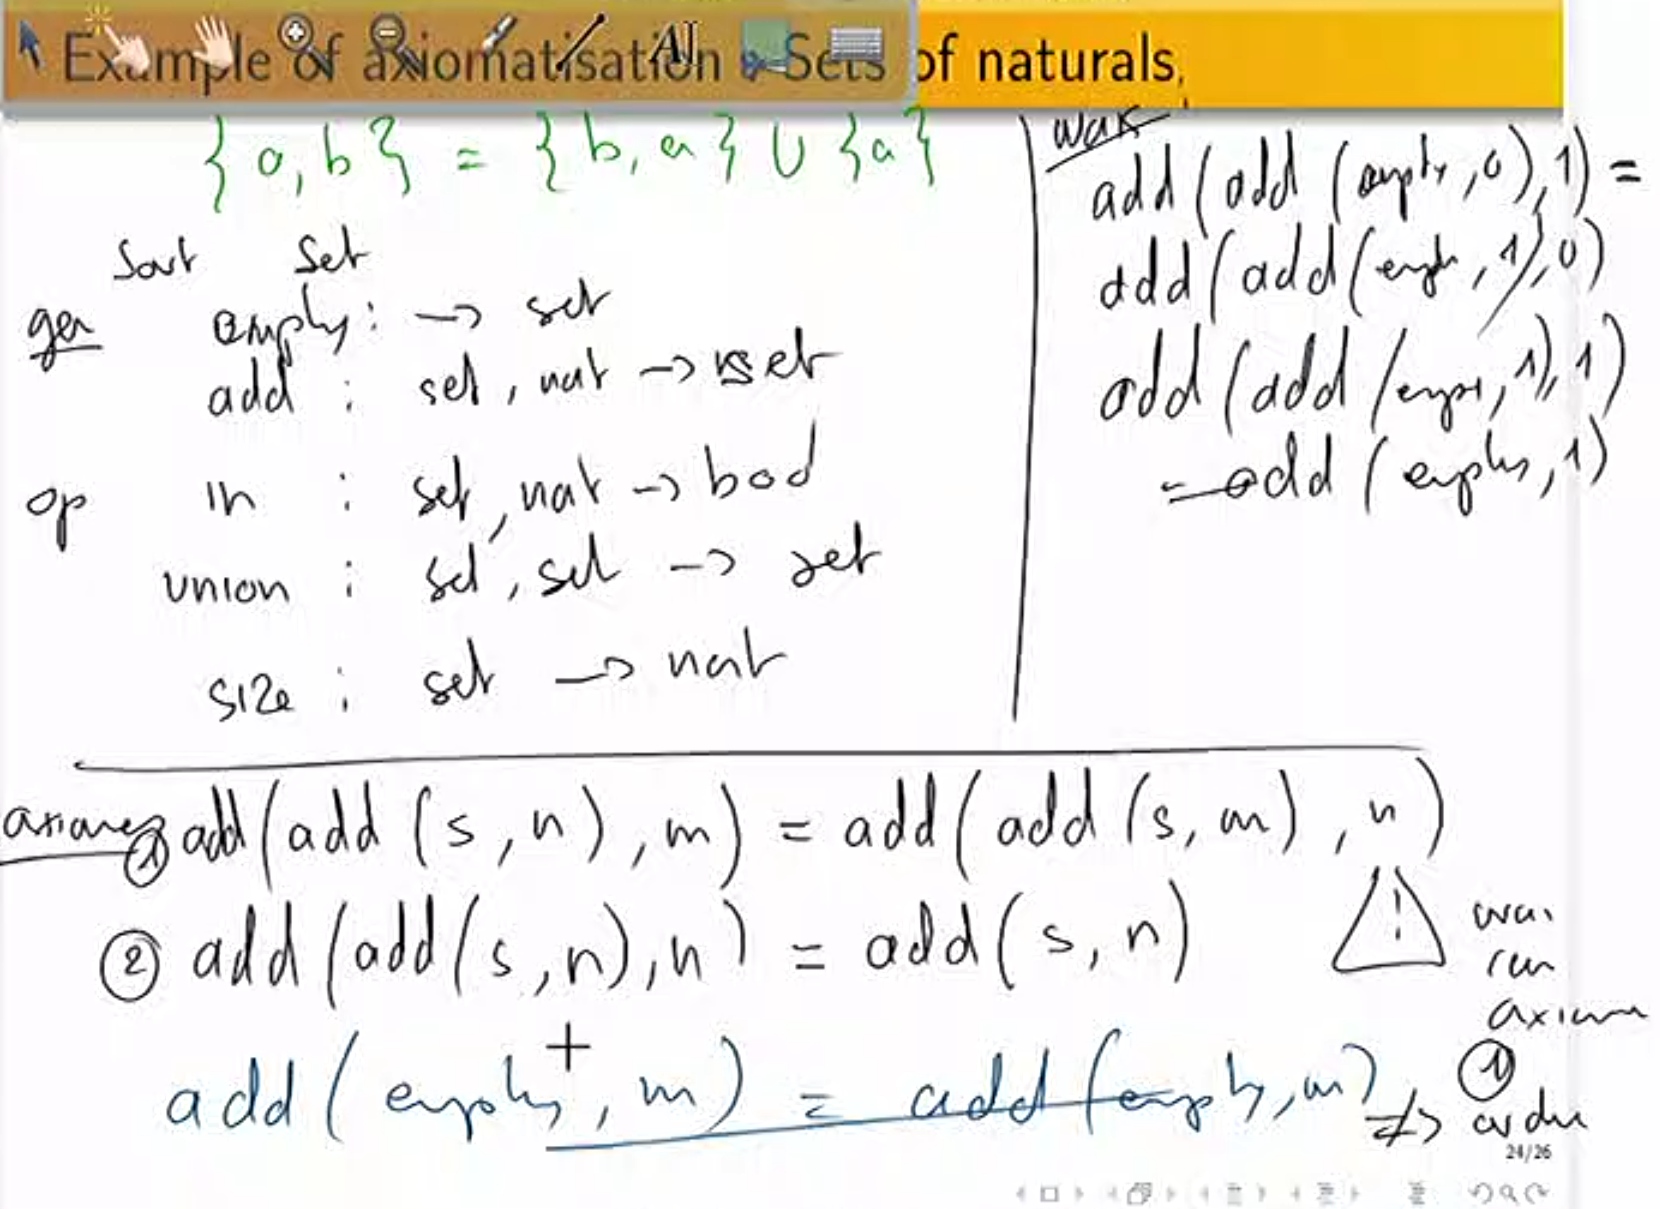 Example of axiomatisation : Sets of naturals,
{a,b} = {b,a} ∪ {a}
Sort Set
gen empty: -> set
add : set, nat -> set
op in : set, nat -> bool
union : set, set -> set
size : set -> nat
want
add(add(empty,0),1) =
add(add(empty,1),0)
add(add(empty,1),1)
= add(empty,1)
axiomes ① add(add(s,n),m) = add(add(s,m),n)
② add(add(s,n),n) = add(s,n)
add(empty,m) = add(empty,m)
axiom
①
≠> order
24/26